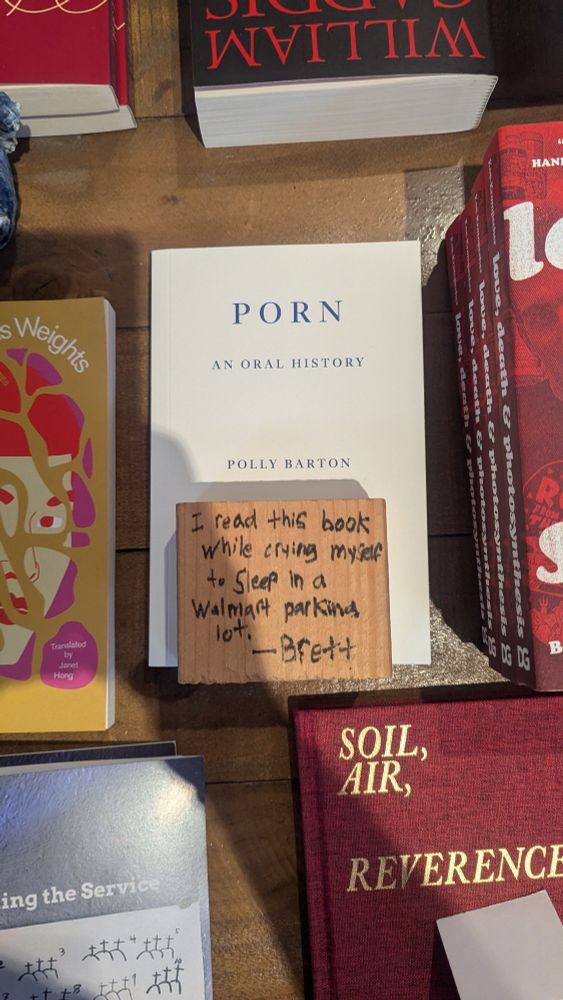 WILLIAM
GADDIS
PORN
AN ORAL HISTORY
POLLY BARTON
I read this book
while crying myself
to sleep in a
Walmart parking
lot.
—Brett
Weights
Translated
by
Janet
Hong
love, death & photosynthesis
love, death & photosynthesis
love, death & photosynthesis
love, death & photosynthesis
DG
DG
DG
DG
SOIL,
AIR,
REVERENCE
ing the Service
3
4
5
8
9
10